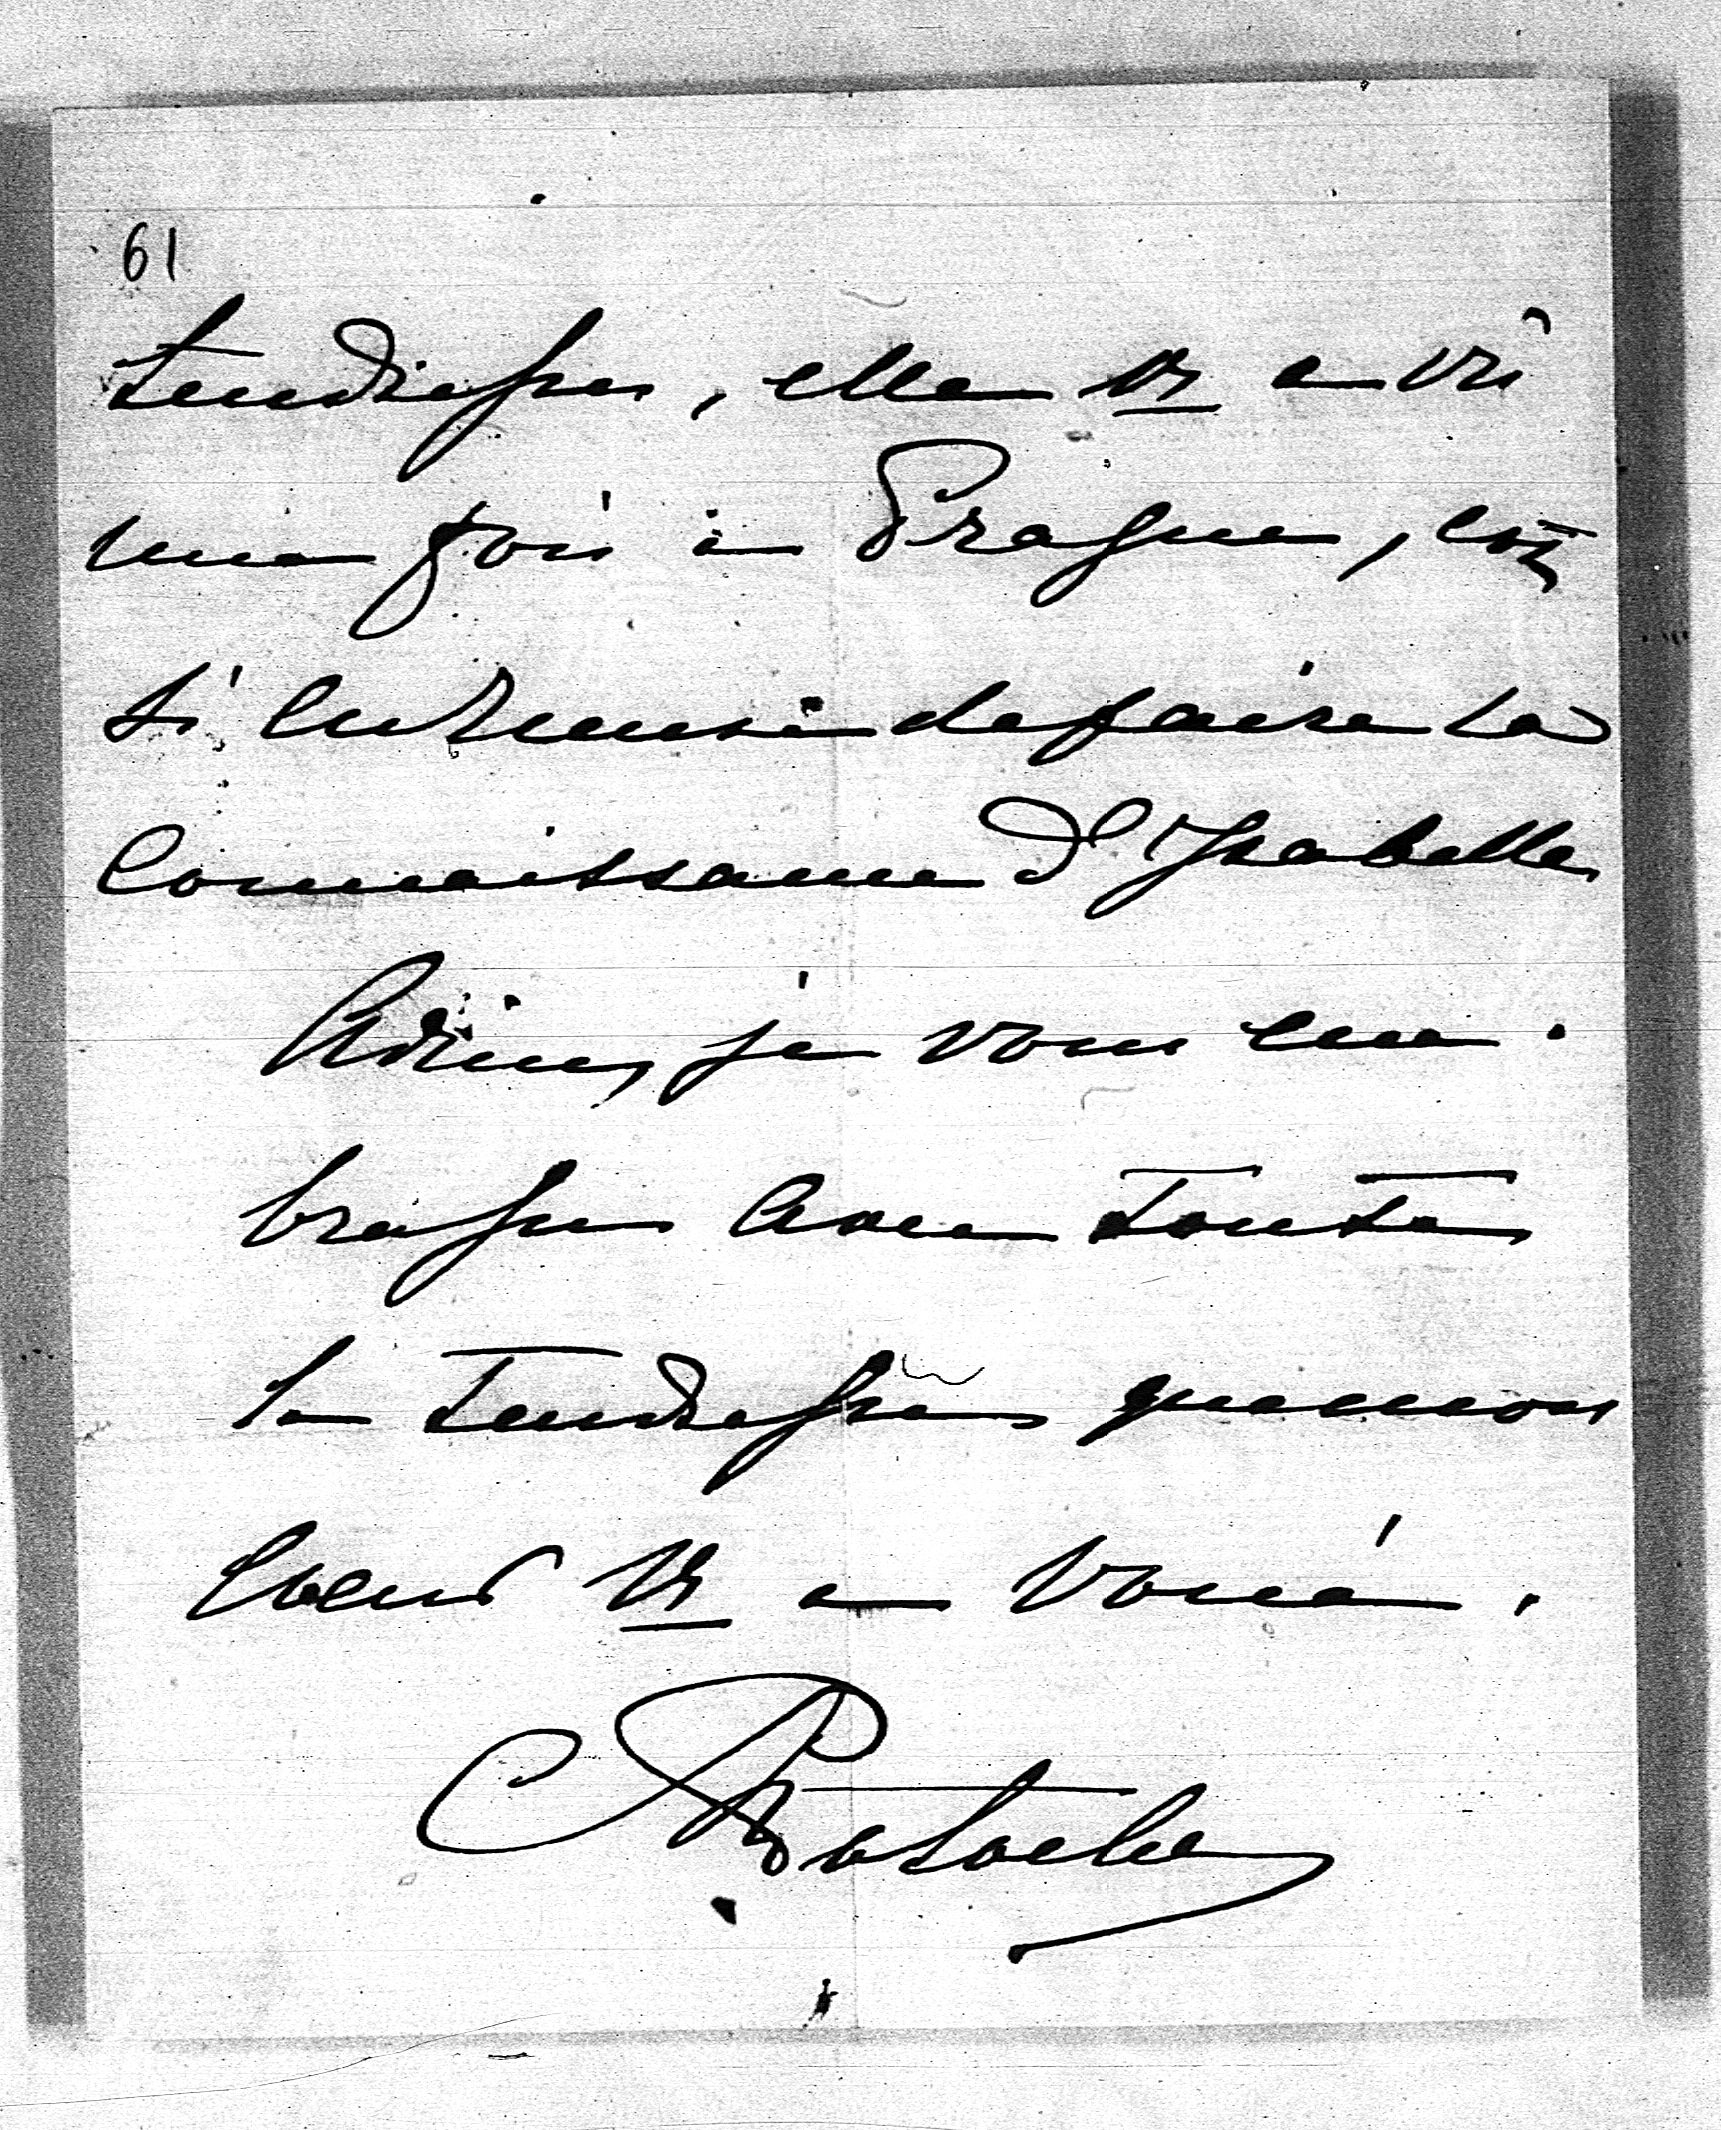 61
tendresse, elle vs a vû
une fois à Prague, est
si heureuse de faire la
Connaissance d'Isabelle
Adieu, je vous em-
brasse avec toute
la tendresse que mon
Coeur vs a voué.